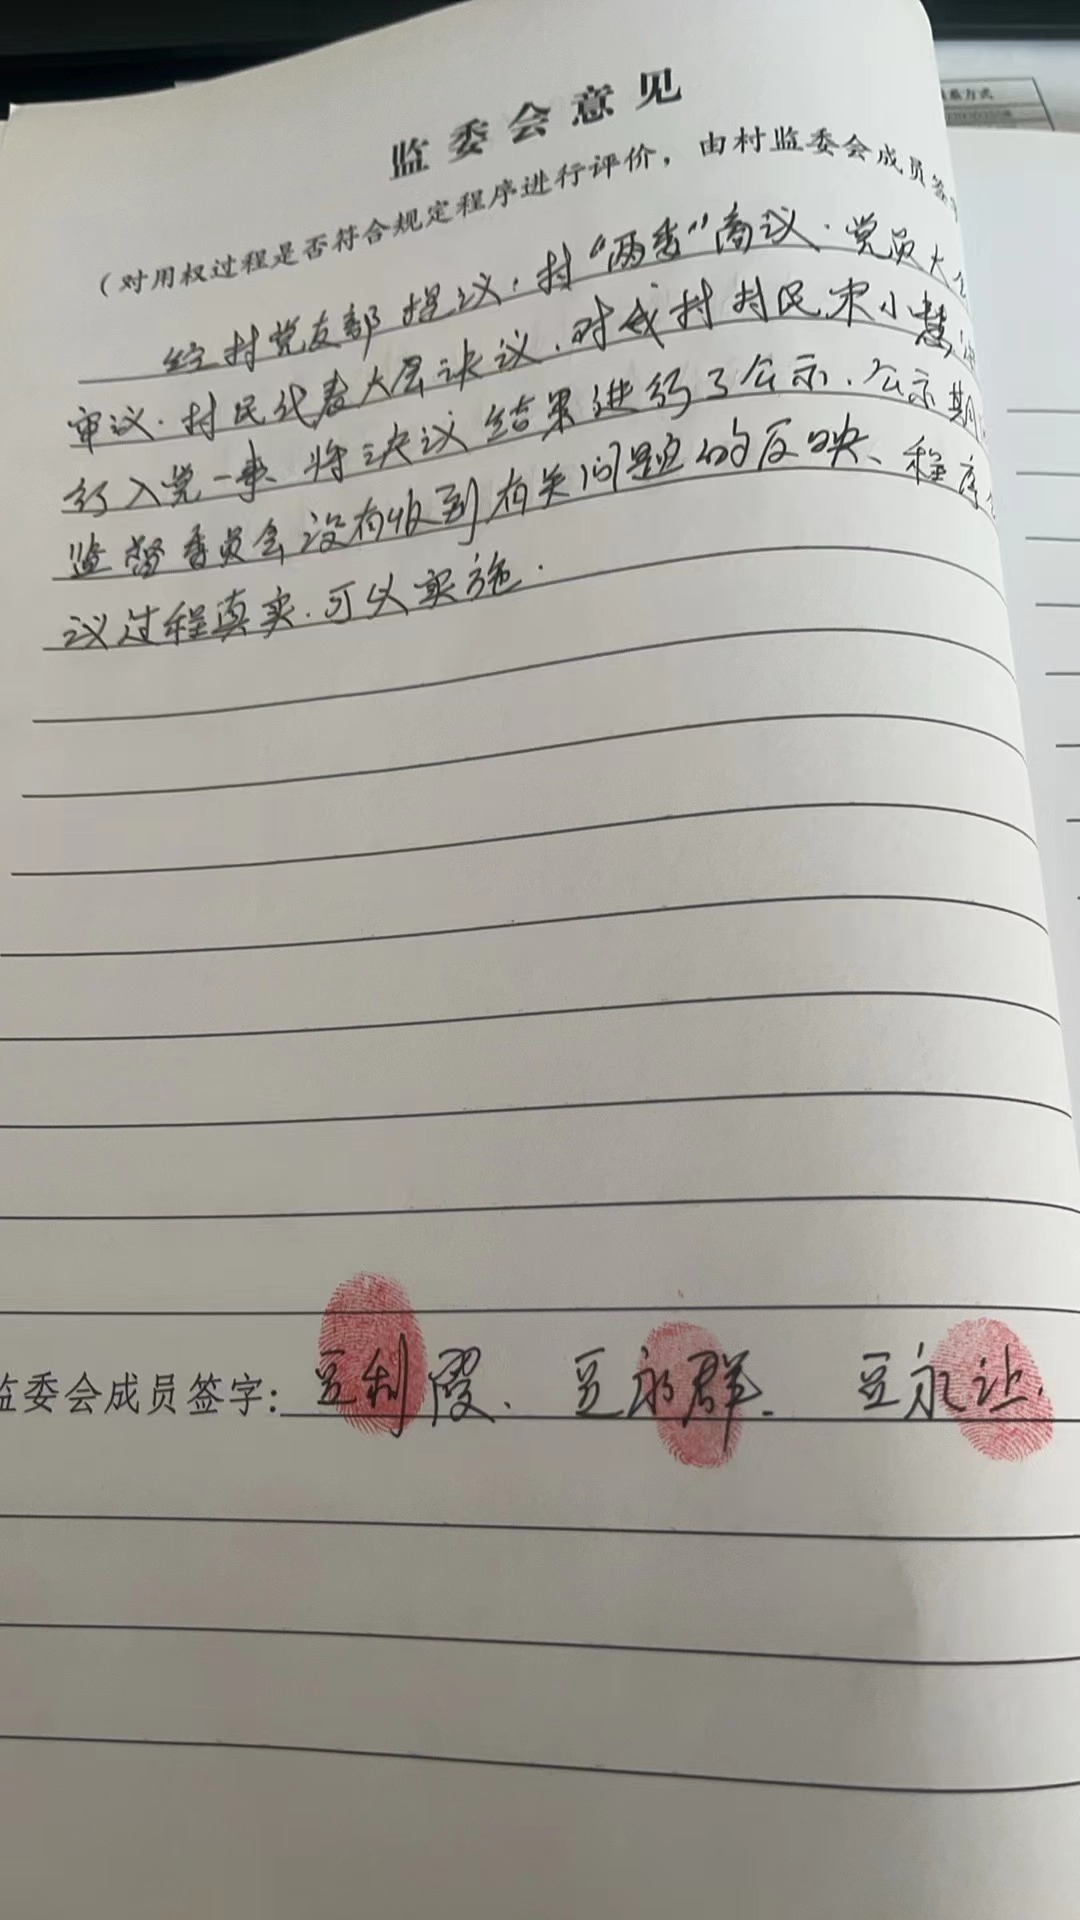 监委会意见
（对用权过程是否符合规定程序进行评价，由村监委会成员签
经村党支部提议，村“两委”商议、党员大会
审议、村民代表大会决议，对我村村民宋小慧
行入党一事，将决议结果进行了公示，公示期
监督委员会没有收到有关问题的反映、程序
议过程真实，可以实施。
监委会成员签字：豆利霞、豆永群、豆永让
系方式